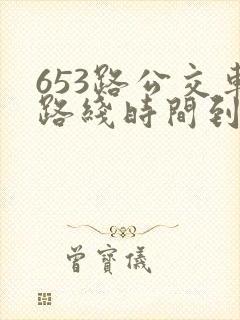 653路公交車
路綫時間到
曾寶儀